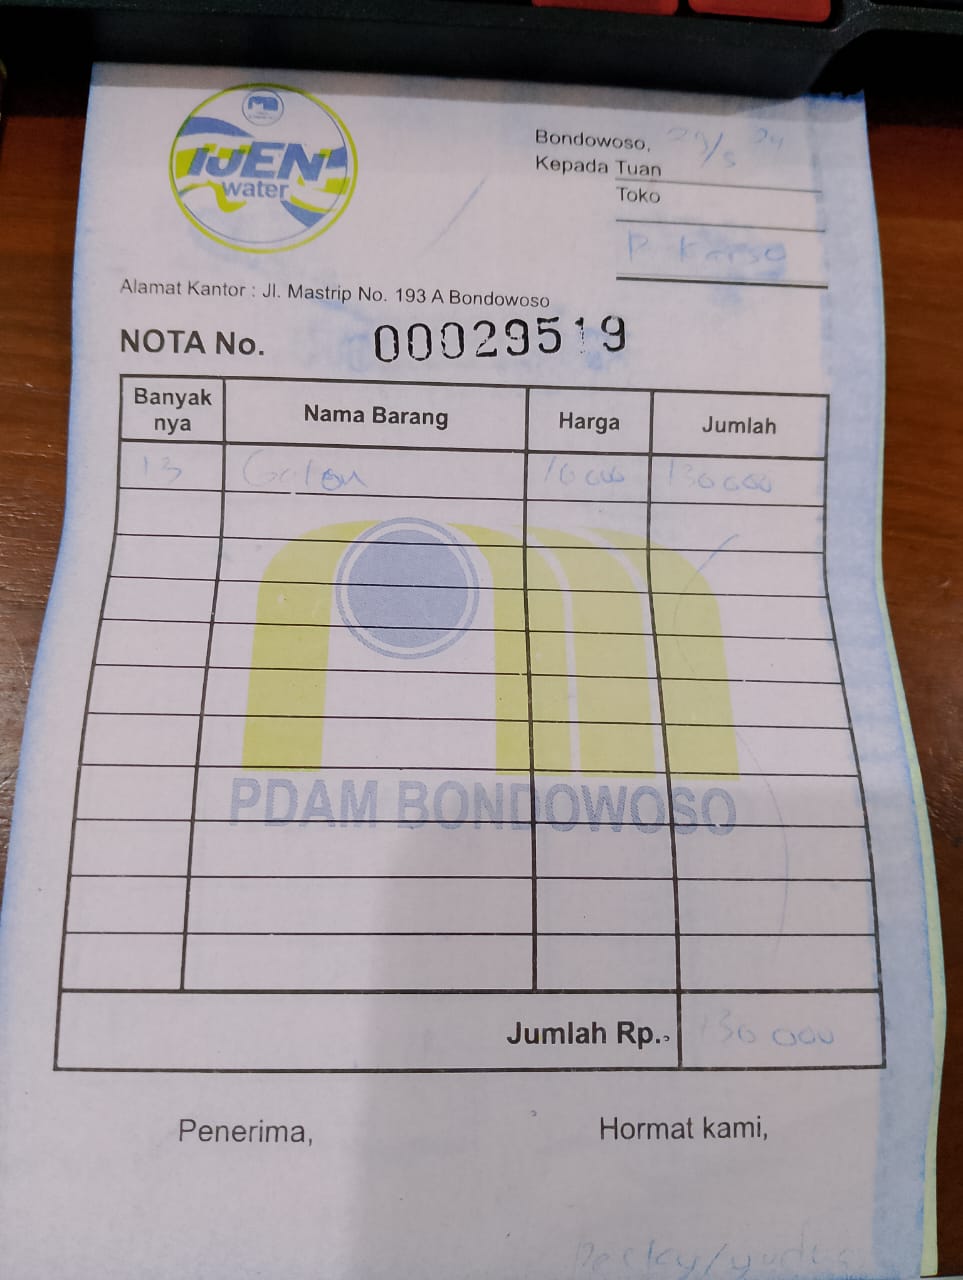 IJEN
water
Bondowoso, 29/5 24
Kepada Tuan
Toko
P Karso
Alamat Kantor : Jl. Mastrip No. 193 A Bondowoso
NOTA No. 00029519
Banyak nya Nama Barang Harga Jumlah
13 Galon 10 000 130 000
PDAM BONDOWOSO
Jumlah Rp.- 130 000
Penerima, Hormat kami,